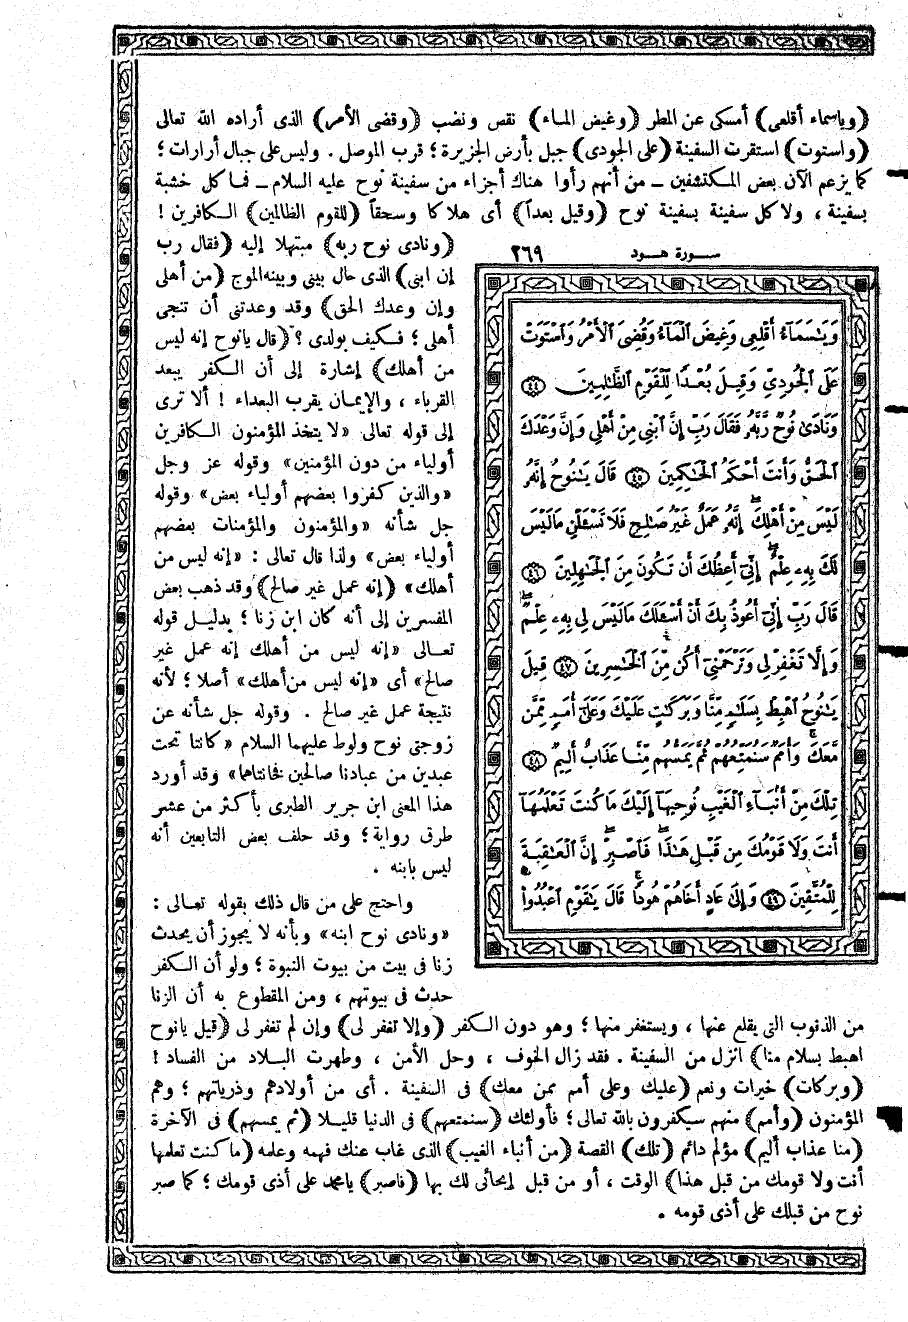 (وياسماء أقلعى) أمسكى عن المطر (وغيض الماء) نقص ونضب (وقضى الأمر) الذى أراده الله تعالى
(واستوت) استقرت السفينة (على الجودى) جبل بأرض الجزيرة؛ قرب الموصل . وليس على جبال أرارات؛
كما يزعم الآن بعض المكتشفين – من أنهم رأوا هناك أجزاء من سفينة نوح عليه السلام – فما كل خشبة
بسفينة ، ولا كل سفينة بسفينة نوح (وقيل بعداً) أى هلاكا وسحقاً (للقوم الظالمين) الكافرين !
(ونادى نوح ربه) مبتهلا إليه (فقال رب
إن ابنى) الذى حال بينى وبينه الموج (من أهلى
وإن وعدك الحق) وقد وعدتنى أن تنجى
أهلى ؛ فكيف بولدى ؟ (قال يانوح إنه ليس
من أهلك) إشارة إلى أن الكفر يبعد
القرباء ، والإيمان يقرب البعداء ! ألا ترى
إلى قوله تعالى «لا يتخذ المؤمنون الكافرين
أولياء من دون المؤمنين» وقوله عز وجل
«والذين كفروا بعضهم أولياء بعض» وقوله
جل شأنه «والمؤمنون والمؤمنات بعضهم
أولياء بعض» ولذا قال تعالى : «إنه ليس من
أهلك» (إنه عمل غير صالح) وقد ذهب بعض
المفسرين إلى أنه كان ابن زنا ؛ بدليل قوله
تعالى «إنه ليس من أهلك إنه عمل غير
صالح» أى «إنه ليس من أهلك» أصلا ؛ لأنه
نتيجة عمل غير صالح . وقوله جل شأنه عن
زوجتى نوح ولوط عليهما السلام «كانتا تحت
عبدين من عبادنا صالحين فخانتاهما» وقد أورد
هذا المعنى ابن جرير الطبرى بأكثر من عشر
طرق رواية ؛ وقد حلف بعض التابعين أنه
ليس بابنه .
واحتج على من قال ذلك بقوله تعالى :
«ونادى نوح ابنه» وبأنه لا يجوز أن يحدث
زنا فى بيت من بيوت النبوة ؛ ولو أن الكفر
حدث فى بيوتهم ، ومن المقطوع به أن الزنا
سورة هود ٢٦٩
وَيَٰسَمَآءُ أَقْلِعِى وَغِيضَ ٱلْمَآءُ وَقُضِىَ ٱلْأَمْرُ وَٱسْتَوَتْ
عَلَى ٱلْجُودِىِّ وَقِيلَ بُعْدًا لِّلْقَوْمِ ٱلظَّٰلِمِينَ ﴿٤٤﴾
وَنَادَىٰ نُوحٌ رَّبَّهُۥ فَقَالَ رَبِّ إِنَّ ٱبْنِى مِنْ أَهْلِى وَإِنَّ وَعْدَكَ
ٱلْحَقُّ وَأَنتَ أَحْكَمُ ٱلْحَٰكِمِينَ ﴿٤٥﴾ قَالَ يَٰنُوحُ إِنَّهُۥ
لَيْسَ مِنْ أَهْلِكَ إِنَّهُۥ عَمَلٌ غَيْرُ صَٰلِحٍ فَلَا تَسْـَٔلْنِ مَا لَيْسَ
لَكَ بِهِۦ عِلْمٌ إِنِّىٓ أَعِظُكَ أَن تَكُونَ مِنَ ٱلْجَٰهِلِينَ ﴿٤٦﴾
قَالَ رَبِّ إِنِّىٓ أَعُوذُ بِكَ أَنْ أَسْـَٔلَكَ مَا لَيْسَ لِى بِهِۦ عِلْمٌ
وَإِلَّا تَغْفِرْ لِى وَتَرْحَمْنِىٓ أَكُن مِّنَ ٱلْخَٰسِرِينَ ﴿٤٧﴾ قِيلَ
يَٰنُوحُ ٱهْبِطْ بِسَلَٰمٍ مِّنَّا وَبَرَكَٰتٍ عَلَيْكَ وَعَلَىٰٓ أُمَمٍ مِّمَّن
مَّعَكَ وَأُمَمٌ سَنُمَتِّعُهُمْ ثُمَّ يَمَسُّهُم مِّنَّا عَذَابٌ أَلِيمٌ ﴿٤٨﴾
تِلْكَ مِنْ أَنۢبَآءِ ٱلْغَيْبِ نُوحِيهَآ إِلَيْكَ مَا كُنتَ تَعْلَمُهَآ
أَنتَ وَلَا قَوْمُكَ مِن قَبْلِ هَٰذَا فَٱصْبِرْ إِنَّ ٱلْعَٰقِبَةَ
لِلْمُتَّقِينَ ﴿٤٩﴾ وَإِلَىٰ عَادٍ أَخَاهُمْ هُودًا قَالَ يَٰقَوْمِ ٱعْبُدُوا۟
من الذنوب التى يقلع عنها ، ويستغفر منها ؛ وهو دون الكفر (وإلا تغفر لى) وإن لم تغفر لى (قيل يانوح
اهبط بسلام منا) انزل من السفينة . فقد زال الخوف ، وحل الأمن ، وطهرت البلاد من الفساد !
(وبركات) خيرات ونعم (عليك وعلى أمم ممن معك) فى السفينة . أى من أولادهم وذرياتهم ؛ وهم
المؤمنون (وأمم) منهم سيكفرون بالله تعالى ؛ فأولئك (سنمتعهم) فى الدنيا قليلا (ثم يمسهم) فى الآخرة
(منا عذاب أليم) مؤلم دائم (تلك) القصة (من أنباء الغيب) الذى غاب عنك فهمه وعلمه (ما كنت تعلمها
أنت ولا قومك من قبل هذا) الوقت ، أو من قبل إيحائى لك بها (فاصبر) يا محمد على أذى قومك ؛ كما صبر
نوح من قبلك على أذى قومه .